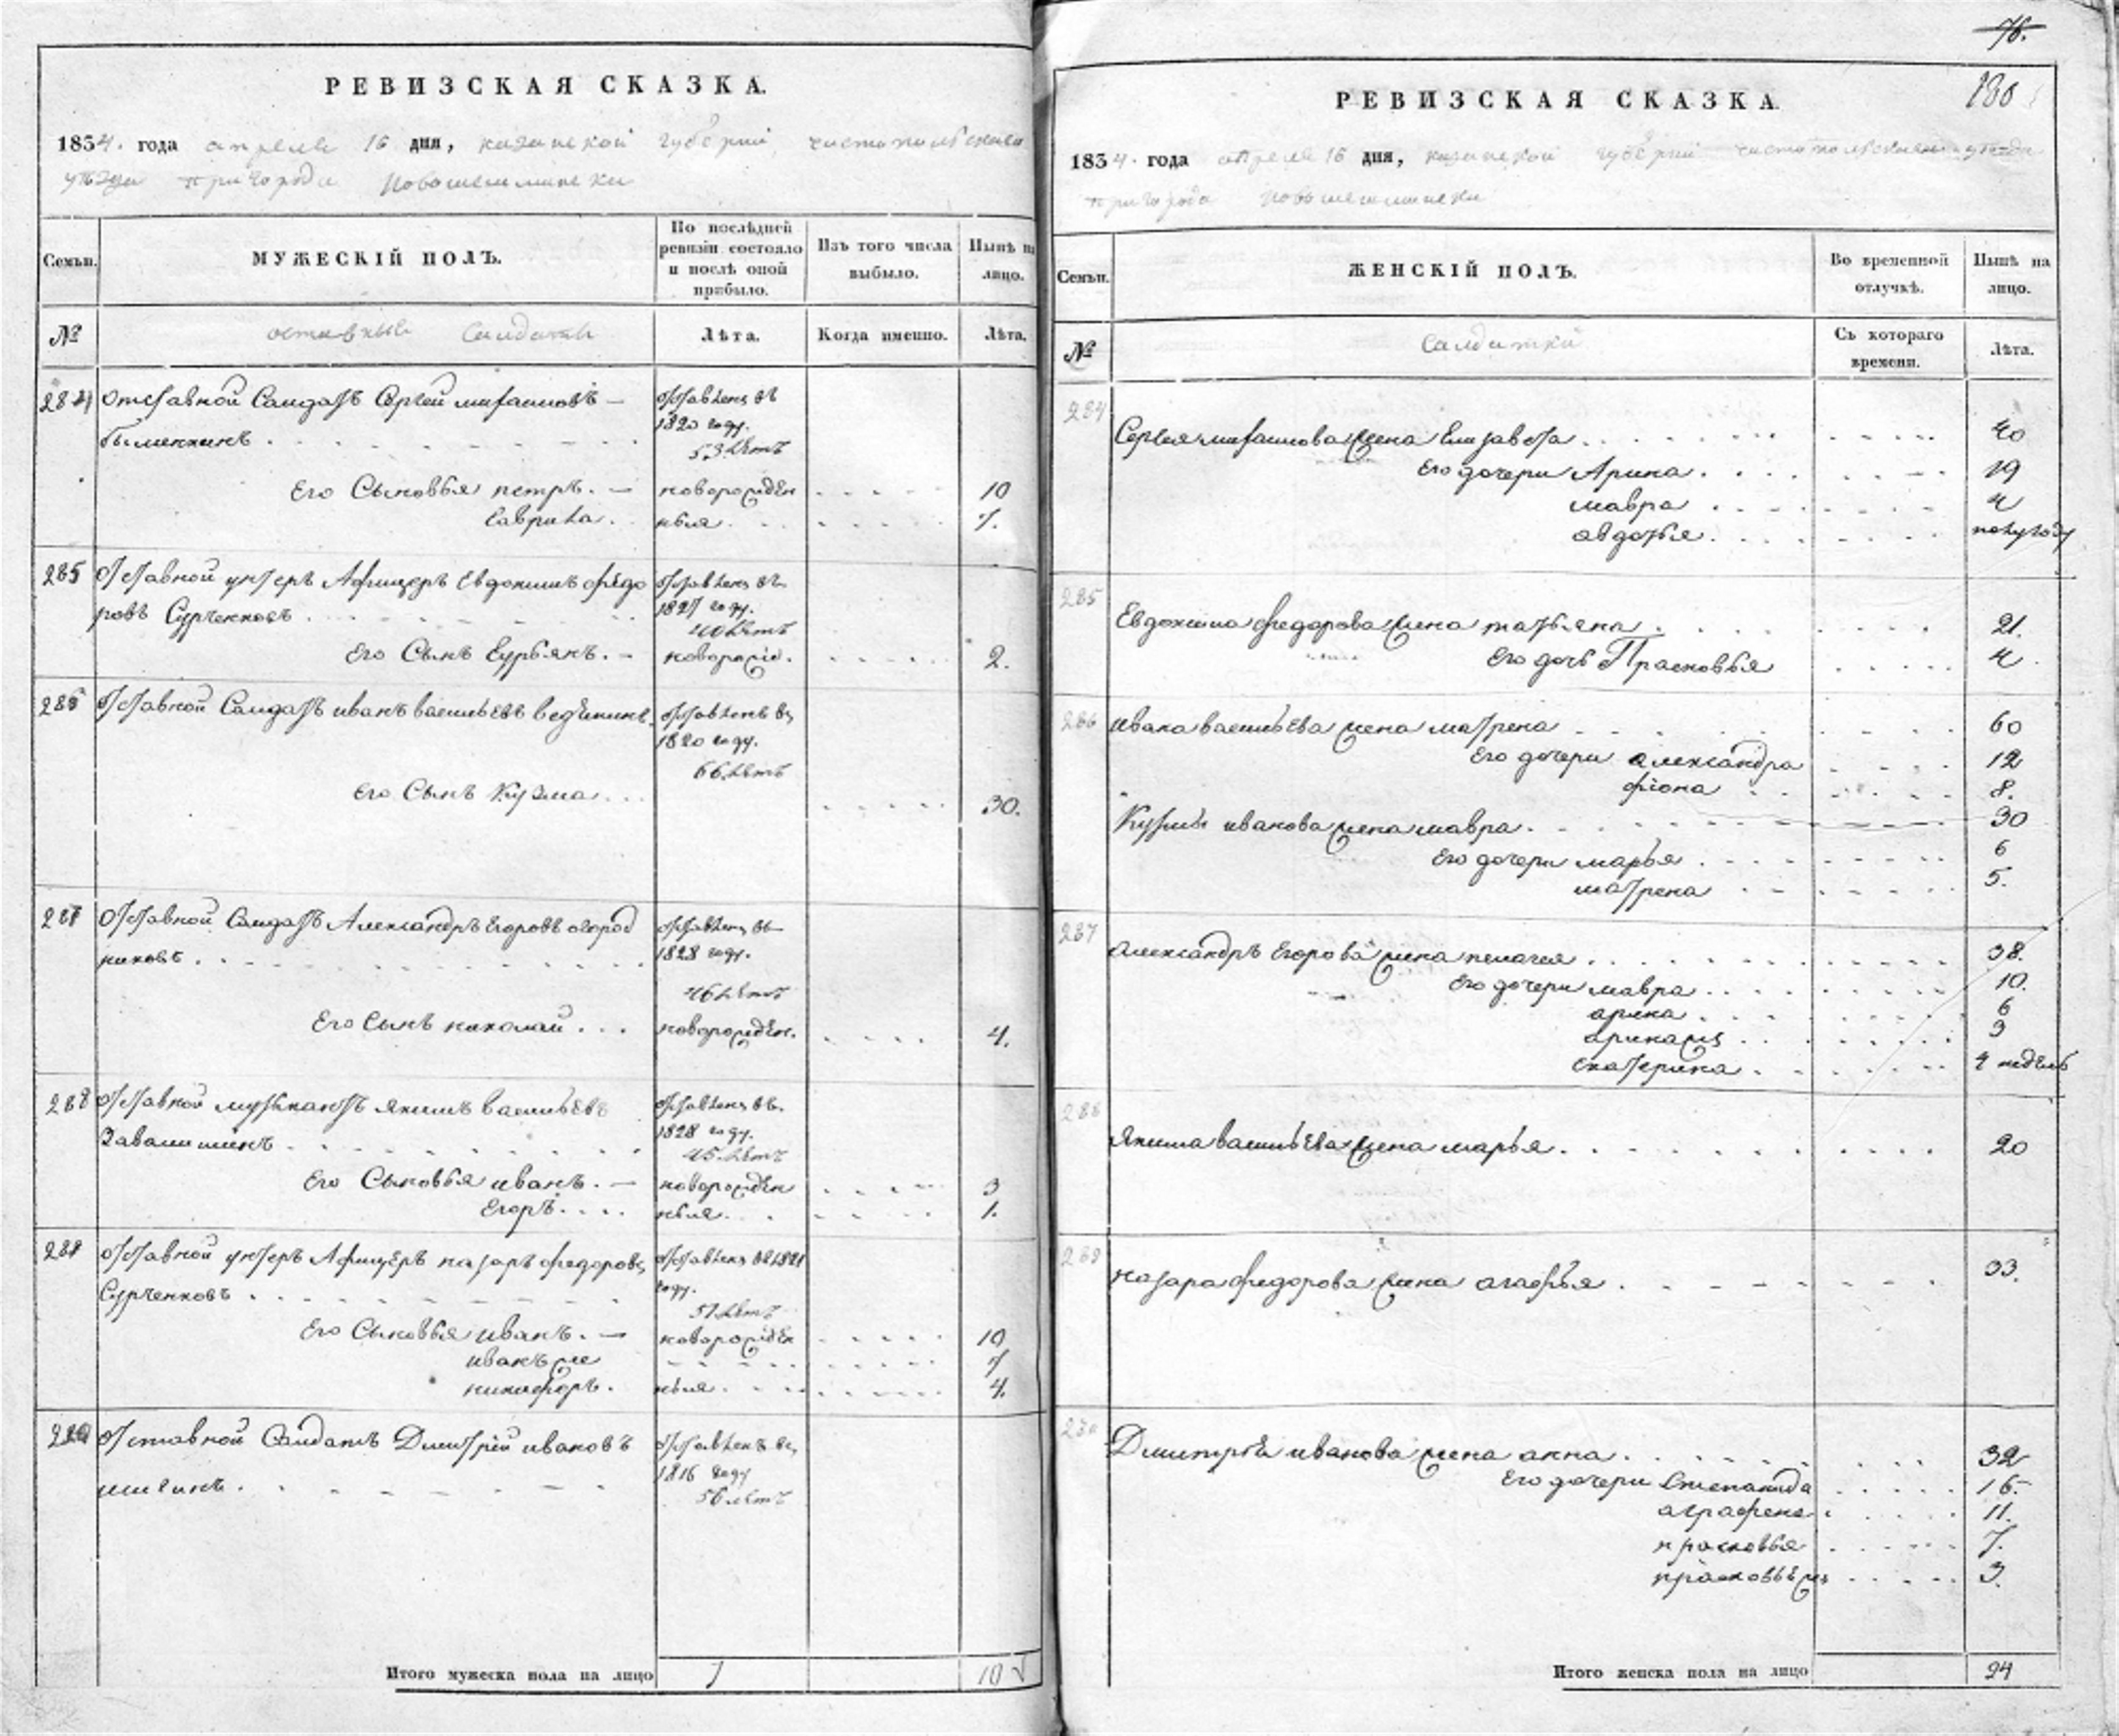 РЕВИЗСКАЯ СКАЗКА.
1834. года апреля 16 дня, казанской губернии чистопольскаго
уезда пригорода Новошешминска
Семьи.
МУЖЕСКІЙ ПОЛЪ.
По послѣдней ревизіи состояло и послѣ оной прибыло.
Изъ того числа выбыло.
Нынѣ на лицо.
№
отставные Салдаты
Лѣта.
Когда именно.
Лѣта.
284 Отставной Салдатъ Сергей михаиловъ — отставленъ въ
1820 году.
53 летъ
Его Сыновья петръ. — новорожден 10
Гаврила. ныя 7.
285 Отставной унтеръ Афицеръ Евдокимъ Федо отставленъ въ
ровъ Сурченковъ 1827 году.
40 летъ
Его Сынъ Гурьянъ. — новорожд. 2.
286 Отставной Салдатъ иванъ васильевъ отставленъ въ
1820 году.
66 летъ
Его Сынъ Кузма 30.
287 Отставной Салдатъ Александръ Егоровъ огород отставленъ въ
никовъ. 1828 году.
46 летъ
Его Сынъ николай новорожден. 4.
288 Отставной музыкантъ якимъ васильевъ отставленъ въ
Завалишинъ 1828 году.
45 летъ
Его Сыновья иванъ. — новорожден 3
Егоръ. ныя. 1.
289 Отставной унтеръ Афицеръ назаръ федоровъ отставленъ въ 1821
Сурченковъ году.
51 летъ
Его Сыновья иванъ. — новорожден 10
иванъ же 7
никифоръ. ныя. 4.
290 Отставной Салдатъ Дмитрій ивановъ отставленъ въ
шигинъ. 1816 году
56 летъ
Итого мужеска пола на лицо 7 10
76.
180
РЕВИЗСКАЯ СКАЗКА.
1834. года апреля 16 дня, казанской губернии чистопольскаго уезда
пригорода Новошешминска
Семьи.
ЖЕНСКІЙ ПОЛЪ.
Во временной отлучкѣ.
Нынѣ на лицо.
№
Салдатки
Съ котораго времени.
Лѣта.
284
Сергея михаилова жена Елизавета 40
Его дочери Арина. 19
мавра 4
авдотья. полугоду
285
Евдокима федорова жена татьяна. 21.
Его дочь Прасковья 4
286 ивана васильева жена матрена 60
Его дочери александра 12
фіона 8.
Кузмы иванова жена мавра. 30
Его дочери марья 6
матрена 5.
287
александръ Егорова жена пелагея 38.
Его дочери мавра 10.
арина 6
арина жъ 3
Екатерина 4 недель
288
якима васильева жена марья. 20
289
назара федорова жена агафья 33.
290
Дмитрея иванова жена анна 32
Его дочери Степанида 16.
аграфена 11.
прасковья 7.
прасковья жъ 3.
Итого женска пола на лицо 24